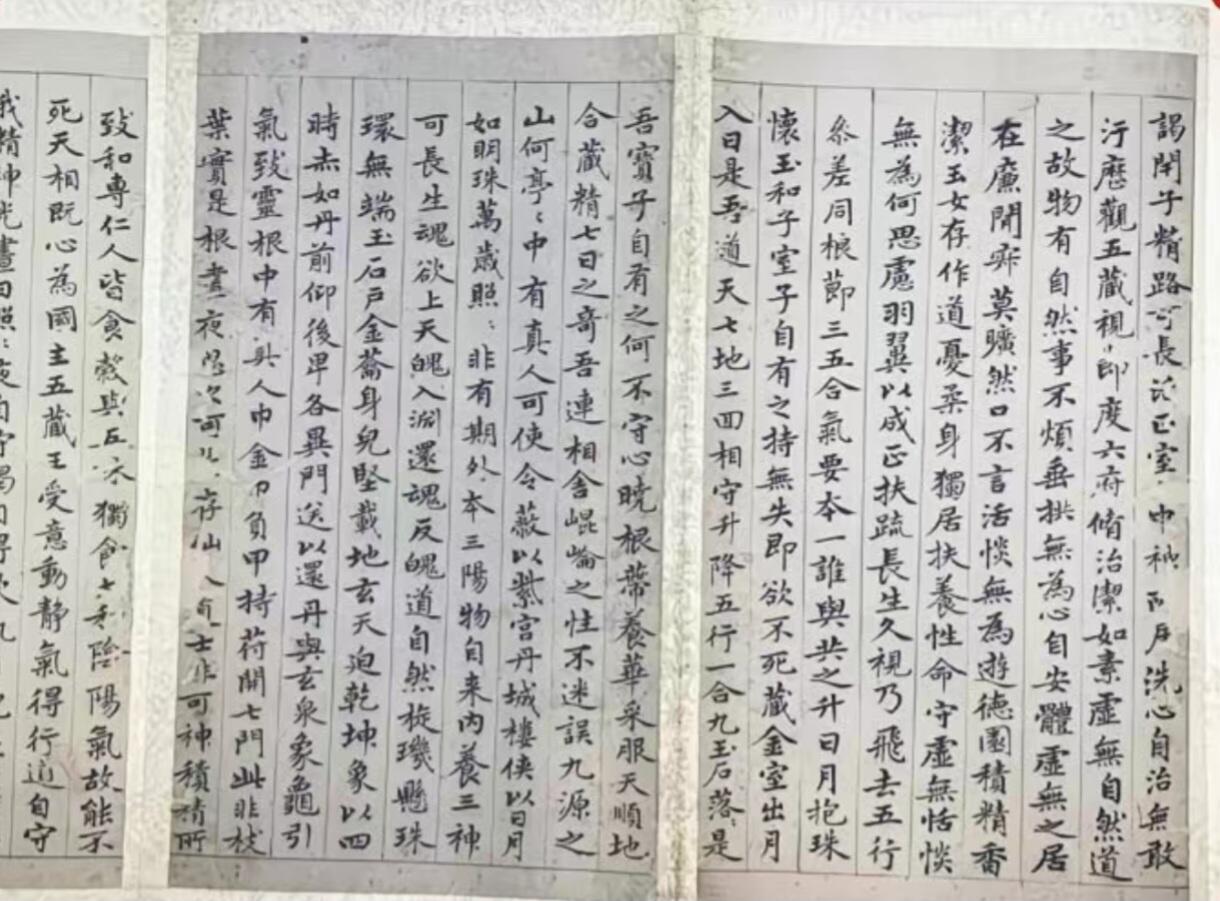 謁閇子精路可長活正室中神所居洗心自治無敢
汙歷觀五藏視節度六府脩治潔如素虛無自然道
之故物有自然事不煩垂拱無為心自安體虛無之居
在廉閒寂莫曠然口不言活惔無為遊德園積精香
潔玉女存作道憂柔身獨居扶養性命守虛無恬惔
無為何思慮羽翼以成正扶疏長生久視乃飛去五行
叅差同根節三五合氣要本一誰與共之升日月抱珠
懷玉和子室子自有之持無失即欲不死藏金室出月
入日是吾道天七地三回相守升降五行一合九玉石落〻是
吾寶子自有之何不守心曉根蔕養華采服天順地
合藏精七日之奇吾連相舍崐崘之性不迷誤九源之
山何亭〻中有真人可使令蔽以紫宮丹城樓俠以日月
如明珠萬歲照〻非有期外本三陽物自来內養三神
可長生魂欲上天魄入淵還魂反魄道自然旋璣懸珠
環無端玉石戶金籥身皃堅載地玄天迫乾坤象以四
時赤如丹前仰後卑各異門送以還丹與玄泉象龜引
氣致靈根中有真人巾金巾負甲持荷開七門此非枝
葉實是根晝夜思之可長存仙人道士非可神積精所
致和專仁人皆食穀與五味獨食太和陰陽氣故能不
死天相既心為國主五藏王受意動靜氣得行道自守
我精神光晝日照〻夜自守渴自得飲